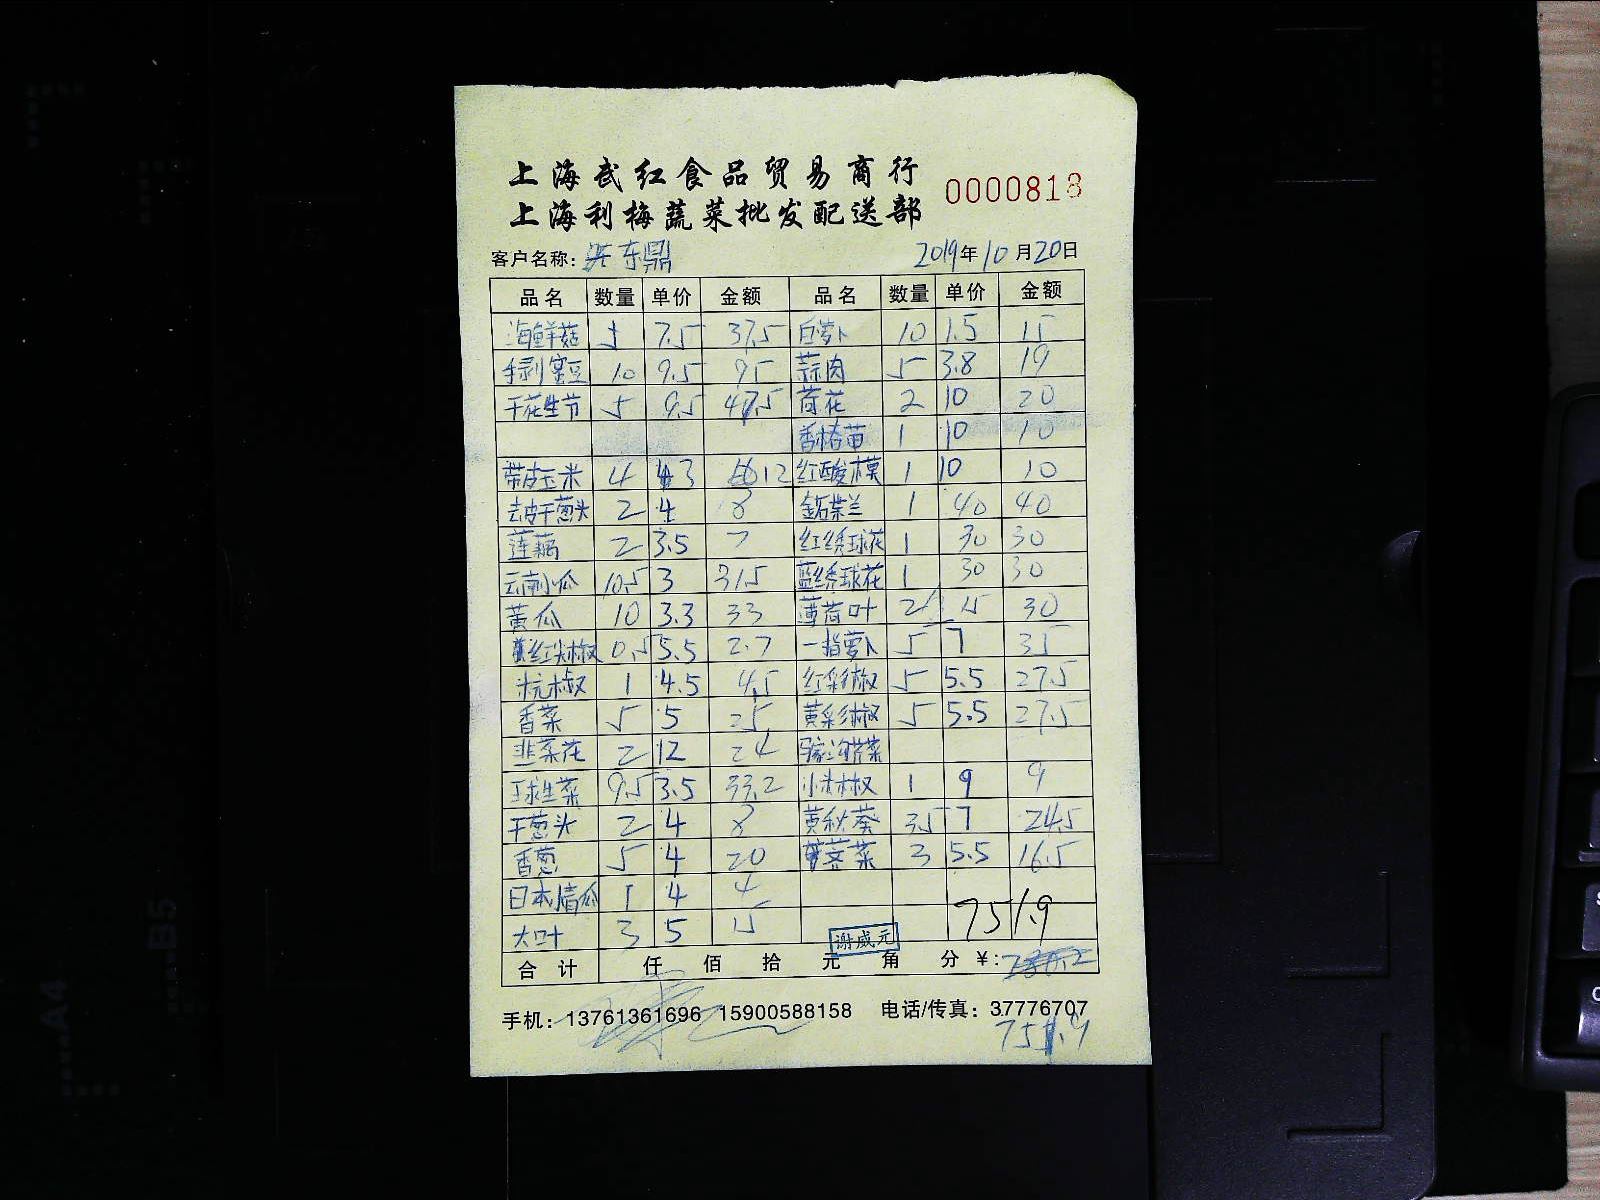 上海武红食品贸易商行
上海利梅蔬菜批发配送部
0000818
客户名称: 东鼎 2019年10月20日
品名 数量 单价 金额 品名 数量 单价 金额
海鲜菇 5 7.5 37.5 白萝卜 10 1.5 15
手剥蜜豆 10 9.5 95 蒜肉 5 3.8 19
干花生节 5 9.5 47.5 荷花 2 10 20
香椿苗 1 10 10
带皮玉米 4 3 12 红酸模 1 10 10
去皮干葱头 2 4 8 1 40 40
莲藕 2 3.5 7 红绣球花 1 30 30
云南小瓜 10.5 3 31.5 蓝绣球花 1 30 30
黄瓜 10 3.3 33 薄荷叶 2 15 30
红尖椒 0.5 5.5 2.7 一指萝卜 5 7 35
杭椒 1 4.5 4.5 红彩椒 5 5.5 27.5
香菜 5 5 25 黄彩椒 5 5.5 27.5
韭菜花 2 12 24
球生菜 9.5 3.5 33.2 小米椒 1 9 9
干葱头 2 4 8 黄秋葵 3.5 7 24.5
香葱 5 4 20 荠菜 3 5.5 16.5
日本青瓜 1 4 4
大叶 3 5 15
751.9
谢威元
合计 仟 佰 拾 元 角 分 ¥:
手机: 13761361696 15900588158 电话/传真: 37776707
751.9